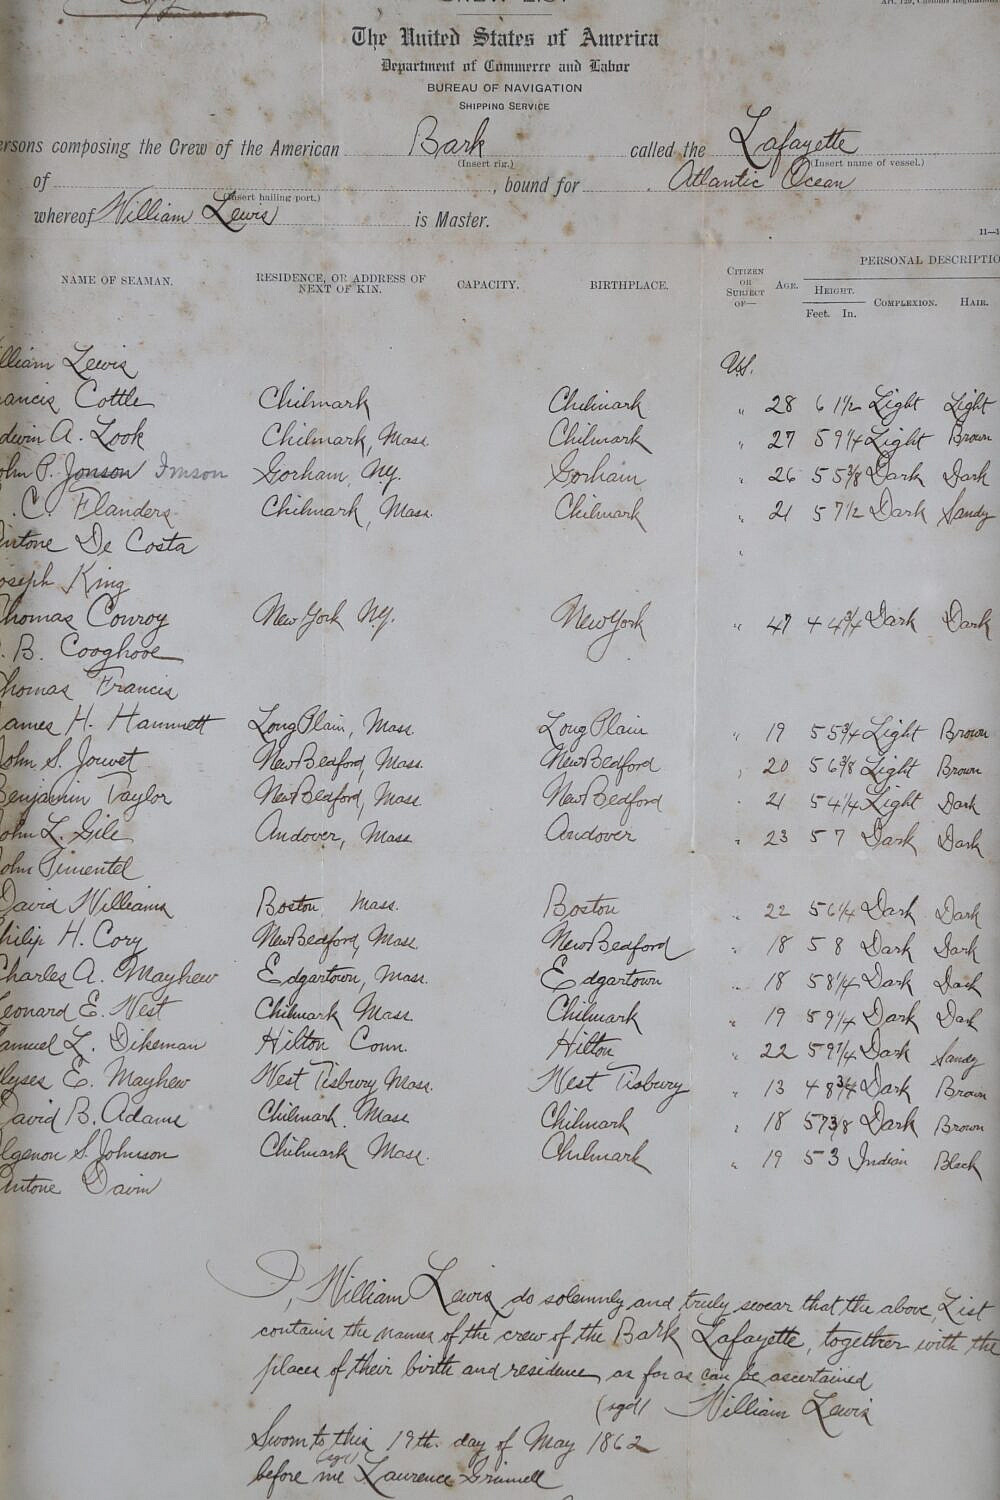 The United States of America
Department of Commerce and Labor
BUREAU OF NAVIGATION
SHIPPING SERVICE
ersons composing the Crew of the American Bark called the Lafayette
(Insert rig.) (Insert name of vessel.)
of , bound for Atlantic Ocean
(Insert hailing port.)
whereof William Lewis is Master.
PERSONAL DESCRIPTIO
NAME OF SEAMAN. RESIDENCE, OR ADDRESS OF NEXT OF KIN. CAPACITY. BIRTHPLACE. CITIZEN OR SUBJECT OF— AGE. HEIGHT. COMPLEXION. HAIR.
Feet. In.
lliam Lewis U.S.
ancis Cottle Chilmark Chilmark " 28 6 1 1/2 Light Light
dwin A. Look Chilmark, Mass. Chilmark " 27 5 9 1/4 Light Brown
ohn P. Jonson Imson Gorham, Ny. Gorham " 26 5 5 3/8 Dark Dark
. C. Flanders Chilmark, Mass. Chilmark " 21 5 7 1/2 Dark Sandy
ntone De Costa "
oseph King
homas Conroy New York Ny. New York " 47 4 4 3/4 Dark Dark
. B. Cooghove
homas Francis
ames H. Hammett Long Plain, Mass. Long Plain " 19 5 5 3/4 Light Brown
ohn S. Jouvet New Bedford, Mass. New Bedford " 20 5 6 3/8 Light Brown
Benjamin Taylor New Bedford, Mass New Bedford " 21 5 4 1/4 Light Dark
ohn L. Gile Andover, Mass Andover " 23 5 7 Dark Dark
ohn Pimentel
David Williams Boston, Mass. Boston " 22 5 6 1/4 Dark Dark
hilip H. Cory New Bedford, Mass New Bedford " 18 5 8 Dark Dark
Charles A. Mayhew Edgartown, Mass. Edgartown " 18 5 8 1/4 Dark Dark
eonard E. West Chilmark Mass. Chilmark " 19 5 9 1/4 Dark Dark
amuel L. Dikeman Hilton Conn. Hilton " 22 5 9 1/4 Dark Sandy
lyses E. Mayhew West Tisbury, Mass. West Tisbury " 13 4 8 3/4 Dark Brown
David B. Adams Chilmark, Mass Chilmark " 18 5 7 3/8 Dark Brown
lgenon S. Johnson Chilmark Mass. Chilmark " 19 5 3 Indian Black
ntone Davin
I, William Lewis, do solemnly and truly swear that the above List
contains the names of the crew of the Bark Lafayette, together with the
places of their birth and residence, as far as can be ascertained
(sgd) William Lewis
Sworn to this 19th. day of May 1862
(sgd)
before me Lawrence Grinnell